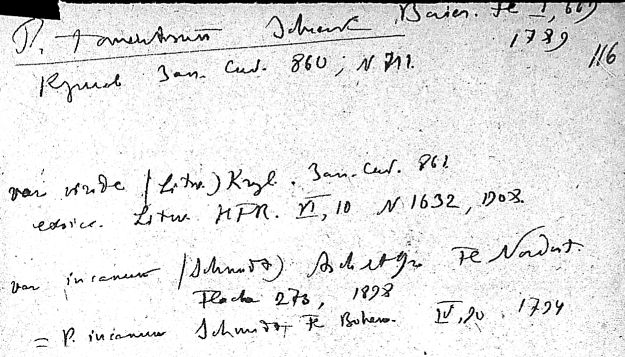 P. tomentosum Schrank Baier. Fl. I, 669
1789
116
Крылов Зап. Сиб. 860; N 711.
var viride (Litw.) Kryl. Зап. Сиб. 861.
exsicc. Litw. HFR. VI, 10 N 1632, 1908.
var incanum (Schmidt) Asch et Gr. Fl. Nordost.
Flachl 273, 1898
= P. incanum Schmidt Fl. Bohem. IV, 90. 1794